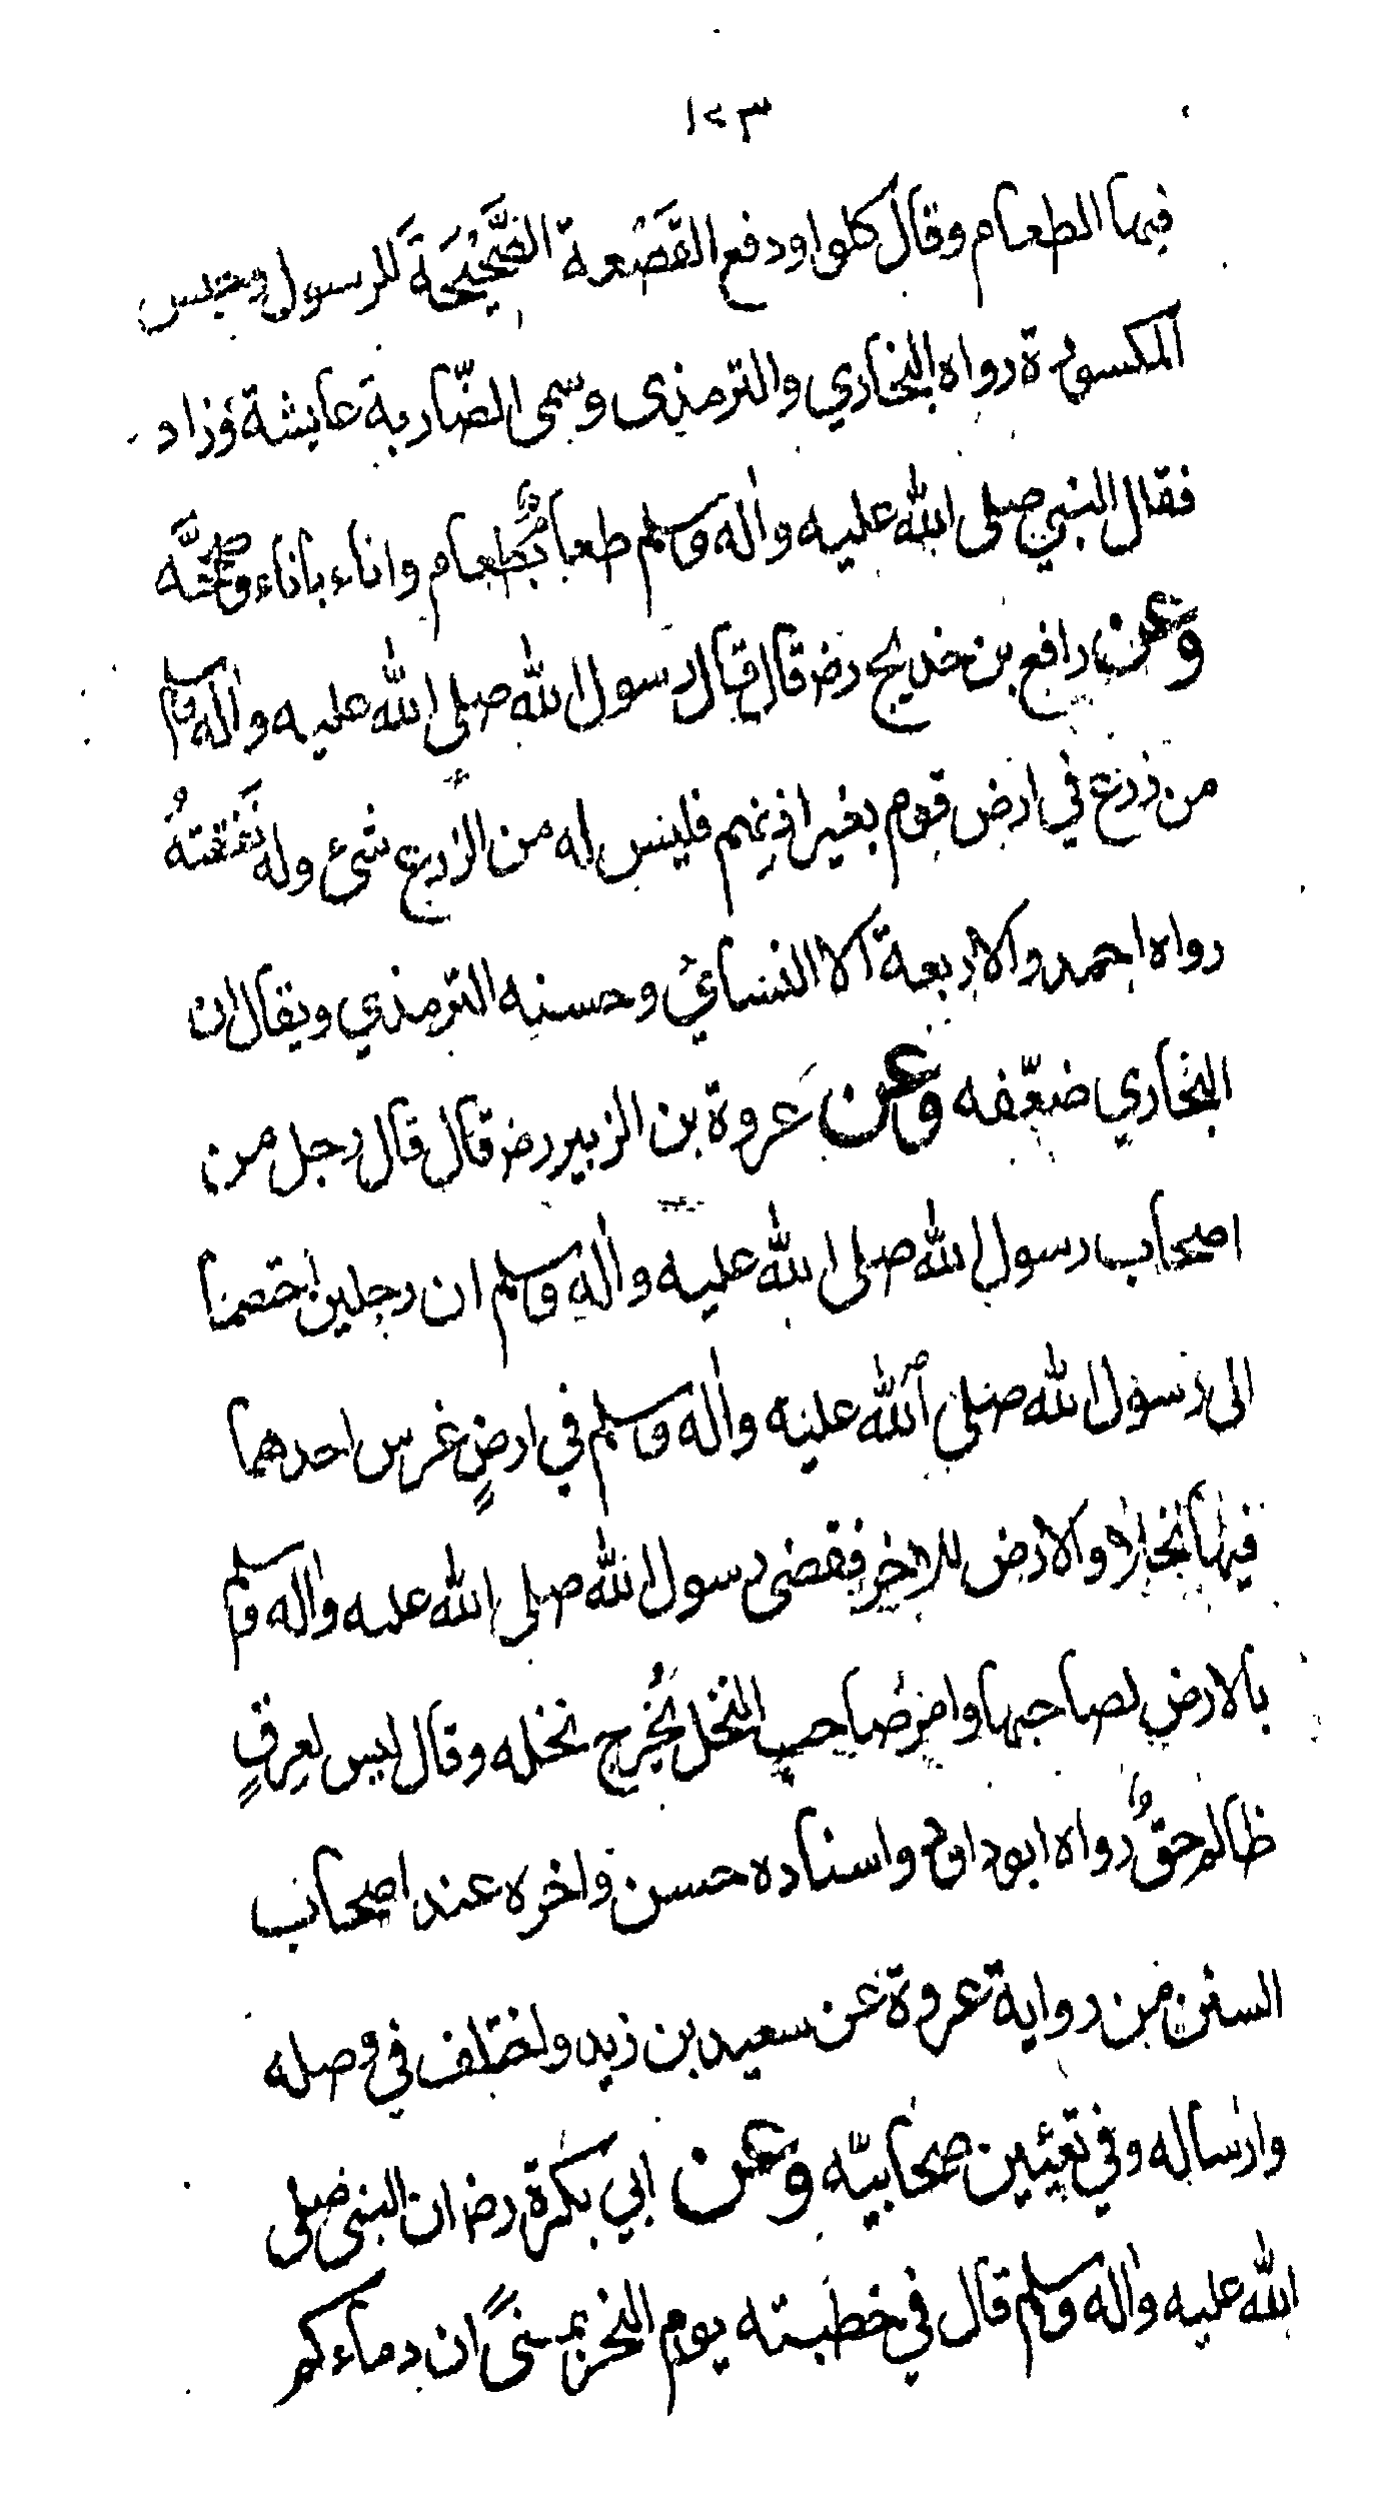 ١٢٣
فيها الطعام وقال كلوا ودفع القَصْعة الصَّحِيْحَةَ للرسول وحبس
المكسورة رواه البخاري والترمذى وسمى الضّاربة عايشة وزاد
فقال النبي صلى الله عليه واله وسلم طعام بطعام واناء باناء وصحّحَّه
وعن رافع بن خديج رض قال قال رسول الله صلى الله عليه واله وسلم
من زرع في ارض قوم بغير اذنهم فليس له من الزرع شئ وله نَفَقتهُ
رواه احمد والاربعة الا النسائي وحسنه الترمذي ويقال ان
البخاري ضعّفه وعن عروة بن الزبير رض قال قال رجل من
اصحاب رسول الله صلى الله عليه واله وسلم ان رجلين اختصما
الى رسول الله صلى الله عليه واله وسلم في ارضٍ غرس احدهما
فيها نخلا والارض للاخر فقضى رسول الله صلى الله عليه واله وسلم
بالارض لصاحبها وامر صاحب النخل يُخرج نخله وقال ليس لعرقٍ
ظالم حقٌ رواه ابو داود واسناده حسن واخره عند اصحاب
السنن من رواية عروة عن سعيد بن زيد واختلف في وصله
وارساله وفي تعيين صحابيّه وعن ابي بكرة رض ان النبي صلى
الله عليه واله وسلم قال في خطبته يوم النحر بمنىً ان دماءكم